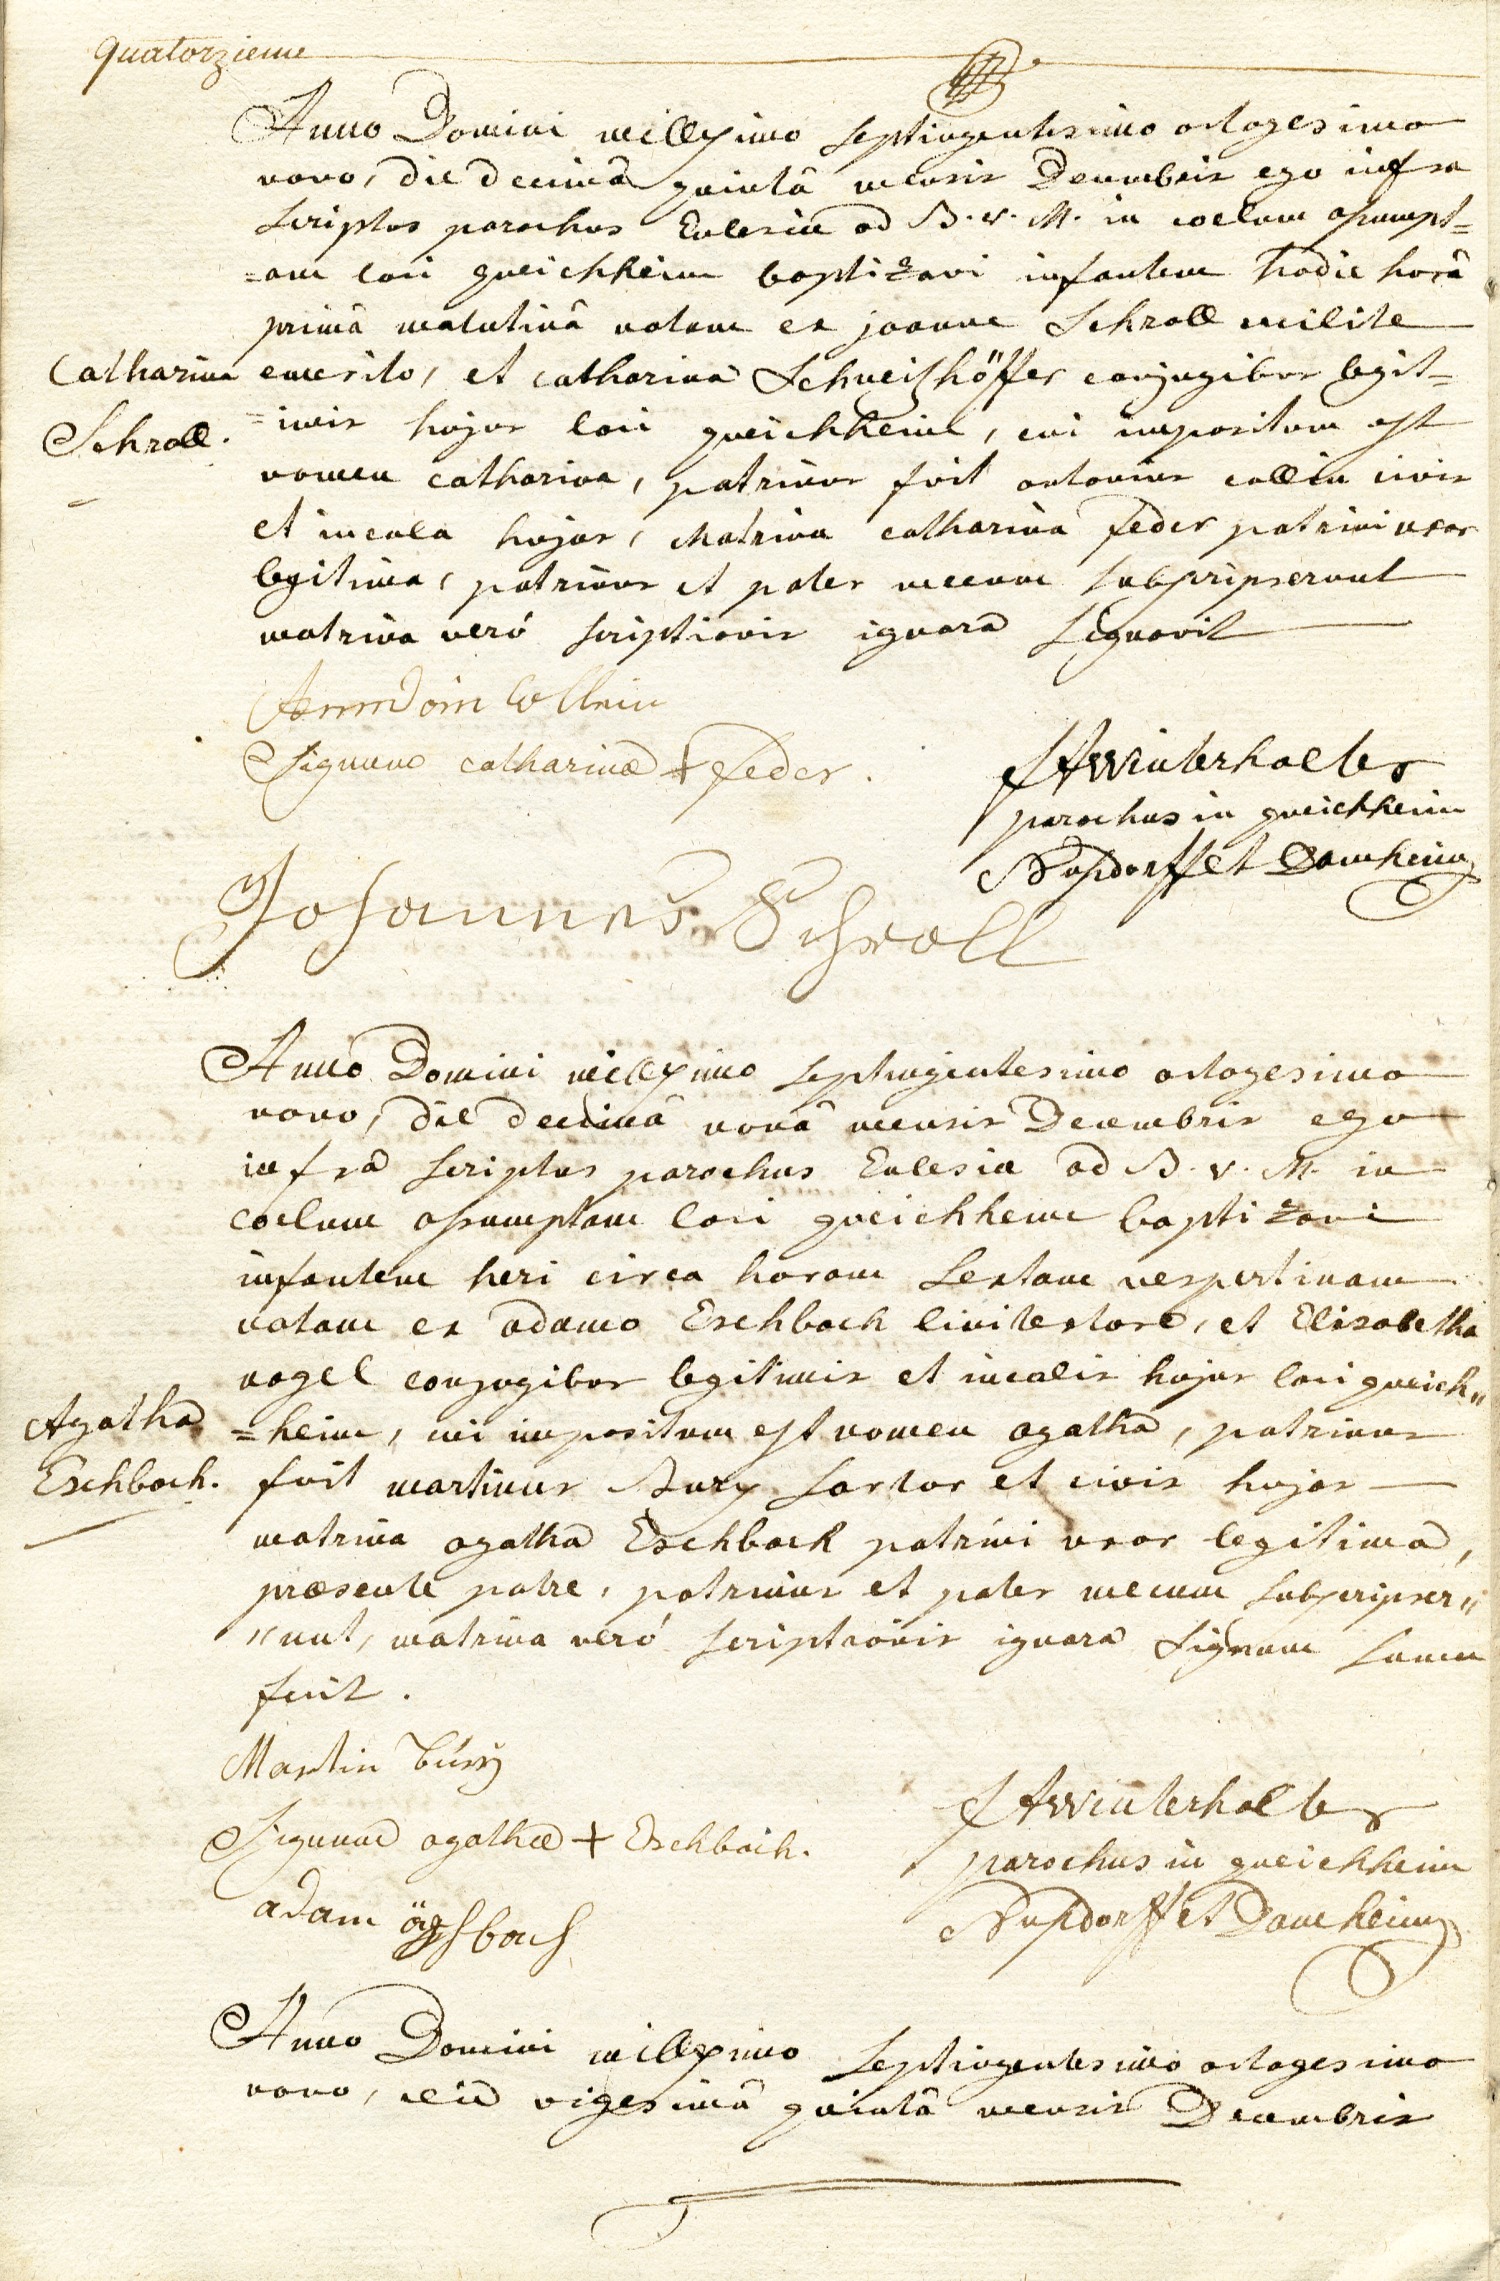 quatorzieme
Anno Domini millesimo septingentesimo octogesimo
nono, die decimâ quintâ mensis Decembris ego infra
scriptus parochus Ecclesiæ ad B. V. M. in coelum assumpt=
=am loci queichheim baptizavi infantem hodie horâ
primâ matutinâ natam ex joanne Schroll milite
Catharina
emerito, et catharina Schweishöffer conjugibus legit=
Schroll.
=imis hujus loci queichheim, cui impositum est
nomen catharina, patrinus fuit antonius collin civis
et incola hujas, Matrina catharina feder patrini uxor
legitima, patrinus et pater mecum subscripserunt
matrina veró scriptionis ignara signavit
Collein
Signum catharinæ + feder.
Winterhalter
parochus in queichheim
Nusdorff et Damheim
Johannes Schroll
Anno Domini millesimo septingentesimo octogesimo
nono, die decimâ nonâ mensis Decembris ego
infrâ scriptus parochus Ecclesiæ ad B. V. M. in
coelum assumptam loci queichheim baptizavi
infantem heri circa horam sextam vespertinam
natam ex adamo Eschbach linitextore, et Elisabetha
vogel conjugibus legitimis et incolis hujus loci queich"
Agatha
=heim, cui impositum est nomen agatha, patrinus
Eschbach.
fuit martinus Bury sartor et civis hujas
matrina agatha Eschbach patrini uxor legitima,
præsente patre, patrinus et pater mecum subscripser"
"unt, matrina veró scriptionis ignara signum suum
fecit.
Martin bürÿ
Signum agathæ + Eschbach.
Winterhalter
parochus in queichheim
adam öschbach
Nusdorff et Damheim
Anno Domini millesimo septingentesimo octogesimo
nono, die vigesimâ quintâ mensis Decembris